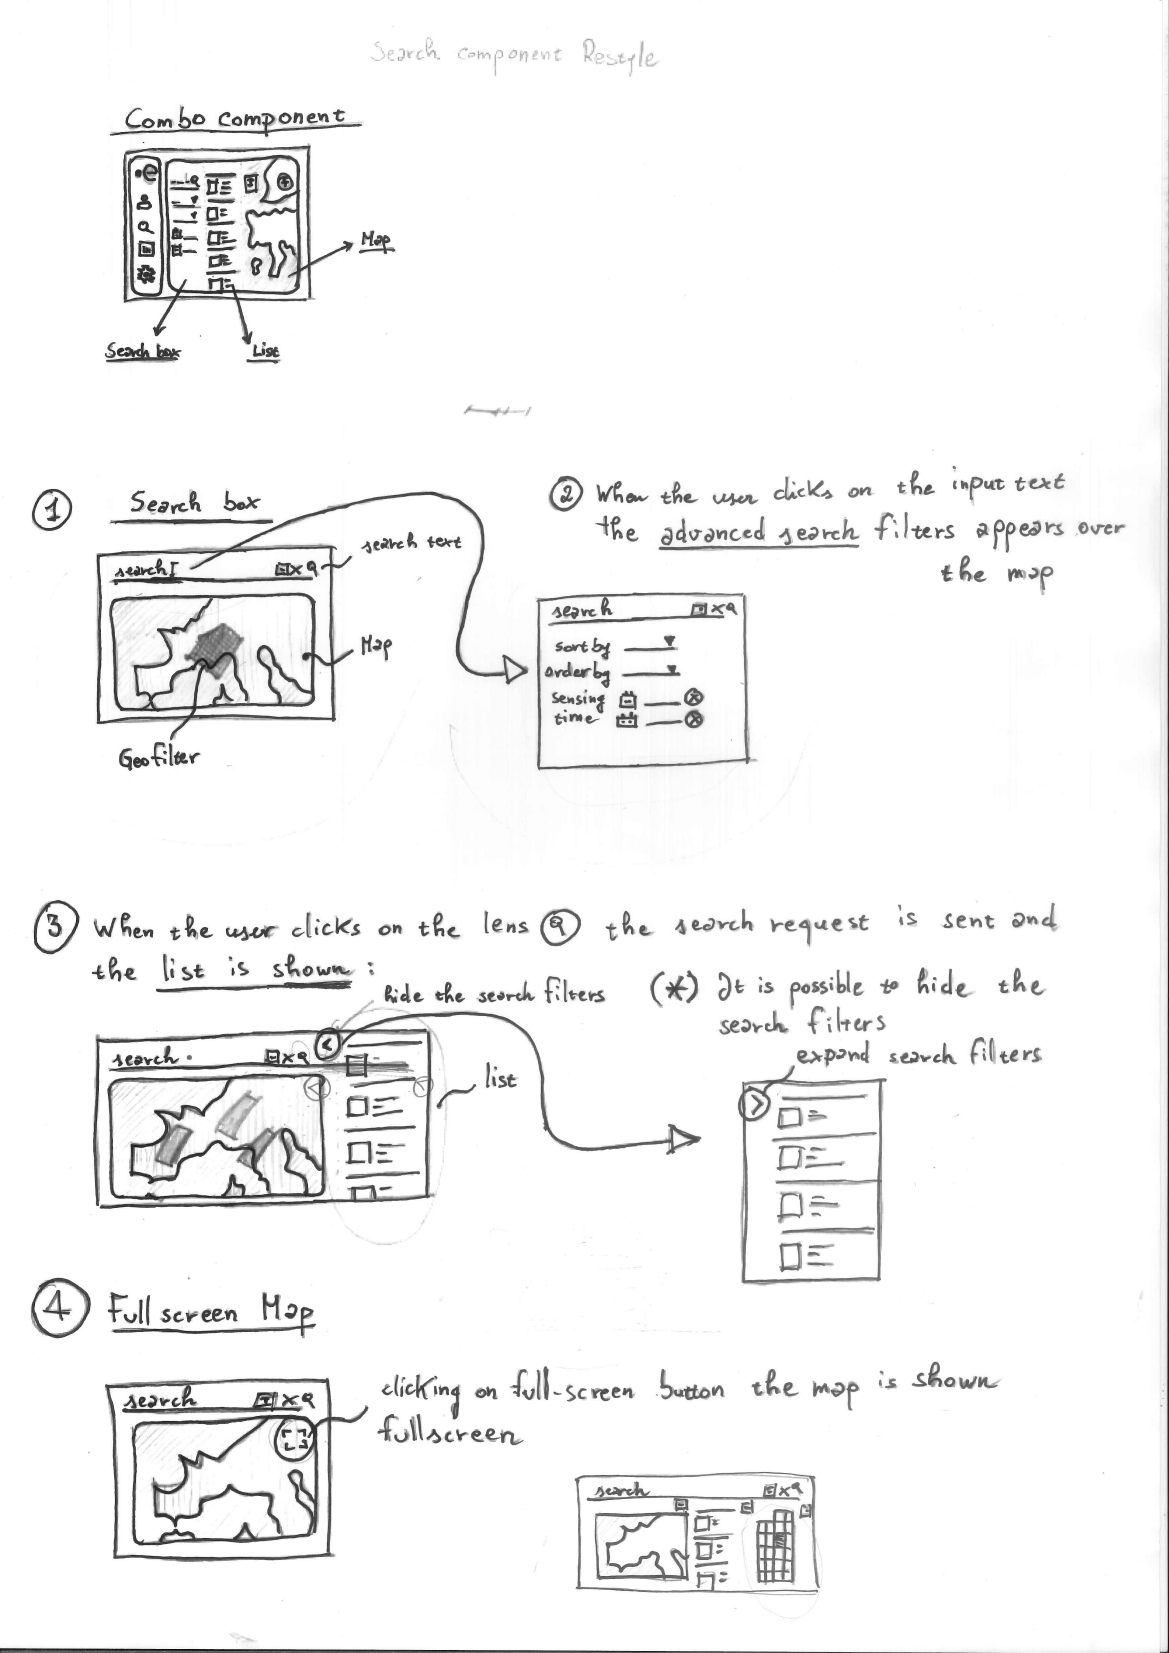 Search component Restyle
Combo component
Map
Search box
List
1
Search box
search text
search
Map
Geofilter
2 When the user clicks on the input text
the advanced search filters appears over
the map
search
sort by
order by
sensing
time
3 When the user clicks on the lens the search request is sent and
the list is shown:
hide the search filters
(*) It is possible to hide the
search filters
expand search filters
search
list
4 Full screen Map
search
clicking on full-screen button the map is shown
fullscreen
search